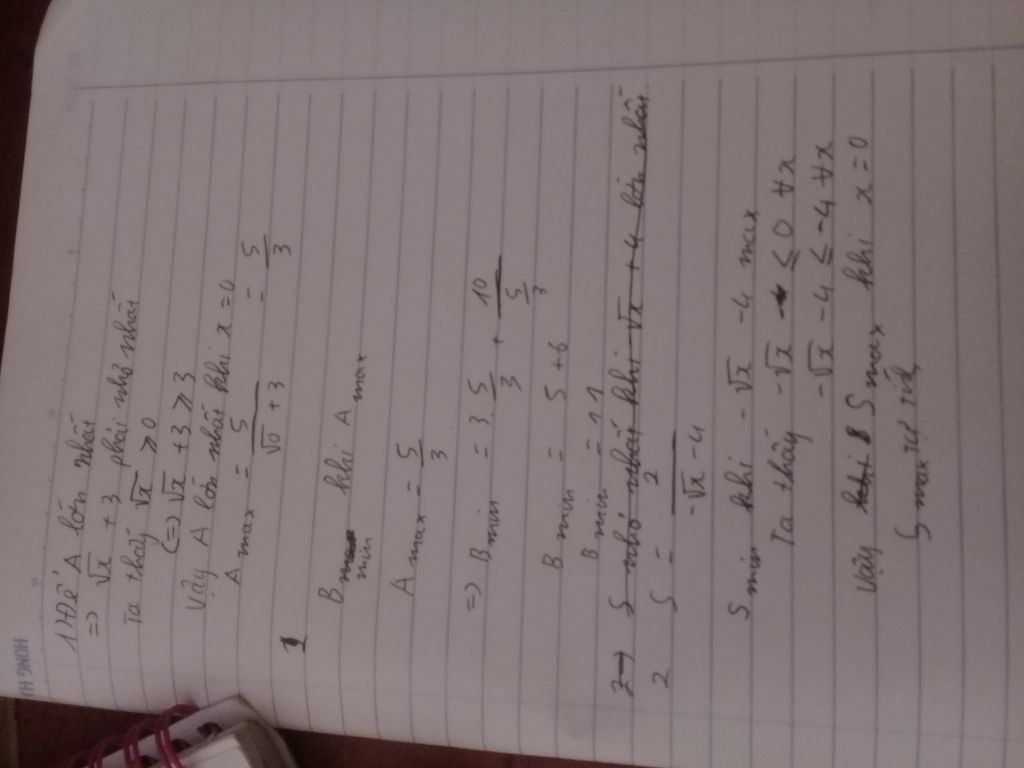 HONG H
1) Để A lớn nhất
=> √x + 3 phải nhỏ nhất
Ta thấy √x ≥ 0
(=) √x + 3 ≥ 3
Vậy A lớn nhất khi x = 0
A max = 5/(√0 + 3) = 5/3
1
B min khi A max
A max = 5/3
=> B min = 3.5/3 + 10/(5/3)
B min = 5 + 6
B min = 11
2 → S nhỏ nhất khi √x + 4 lớn nhất
2 S = 2/(-√x - 4)
S min khi -√x - 4 max
Ta thấy -√x ≤ 0 ∀x
-√x - 4 ≤ -4 ∀x
Vậy S max khi x = 0
S max